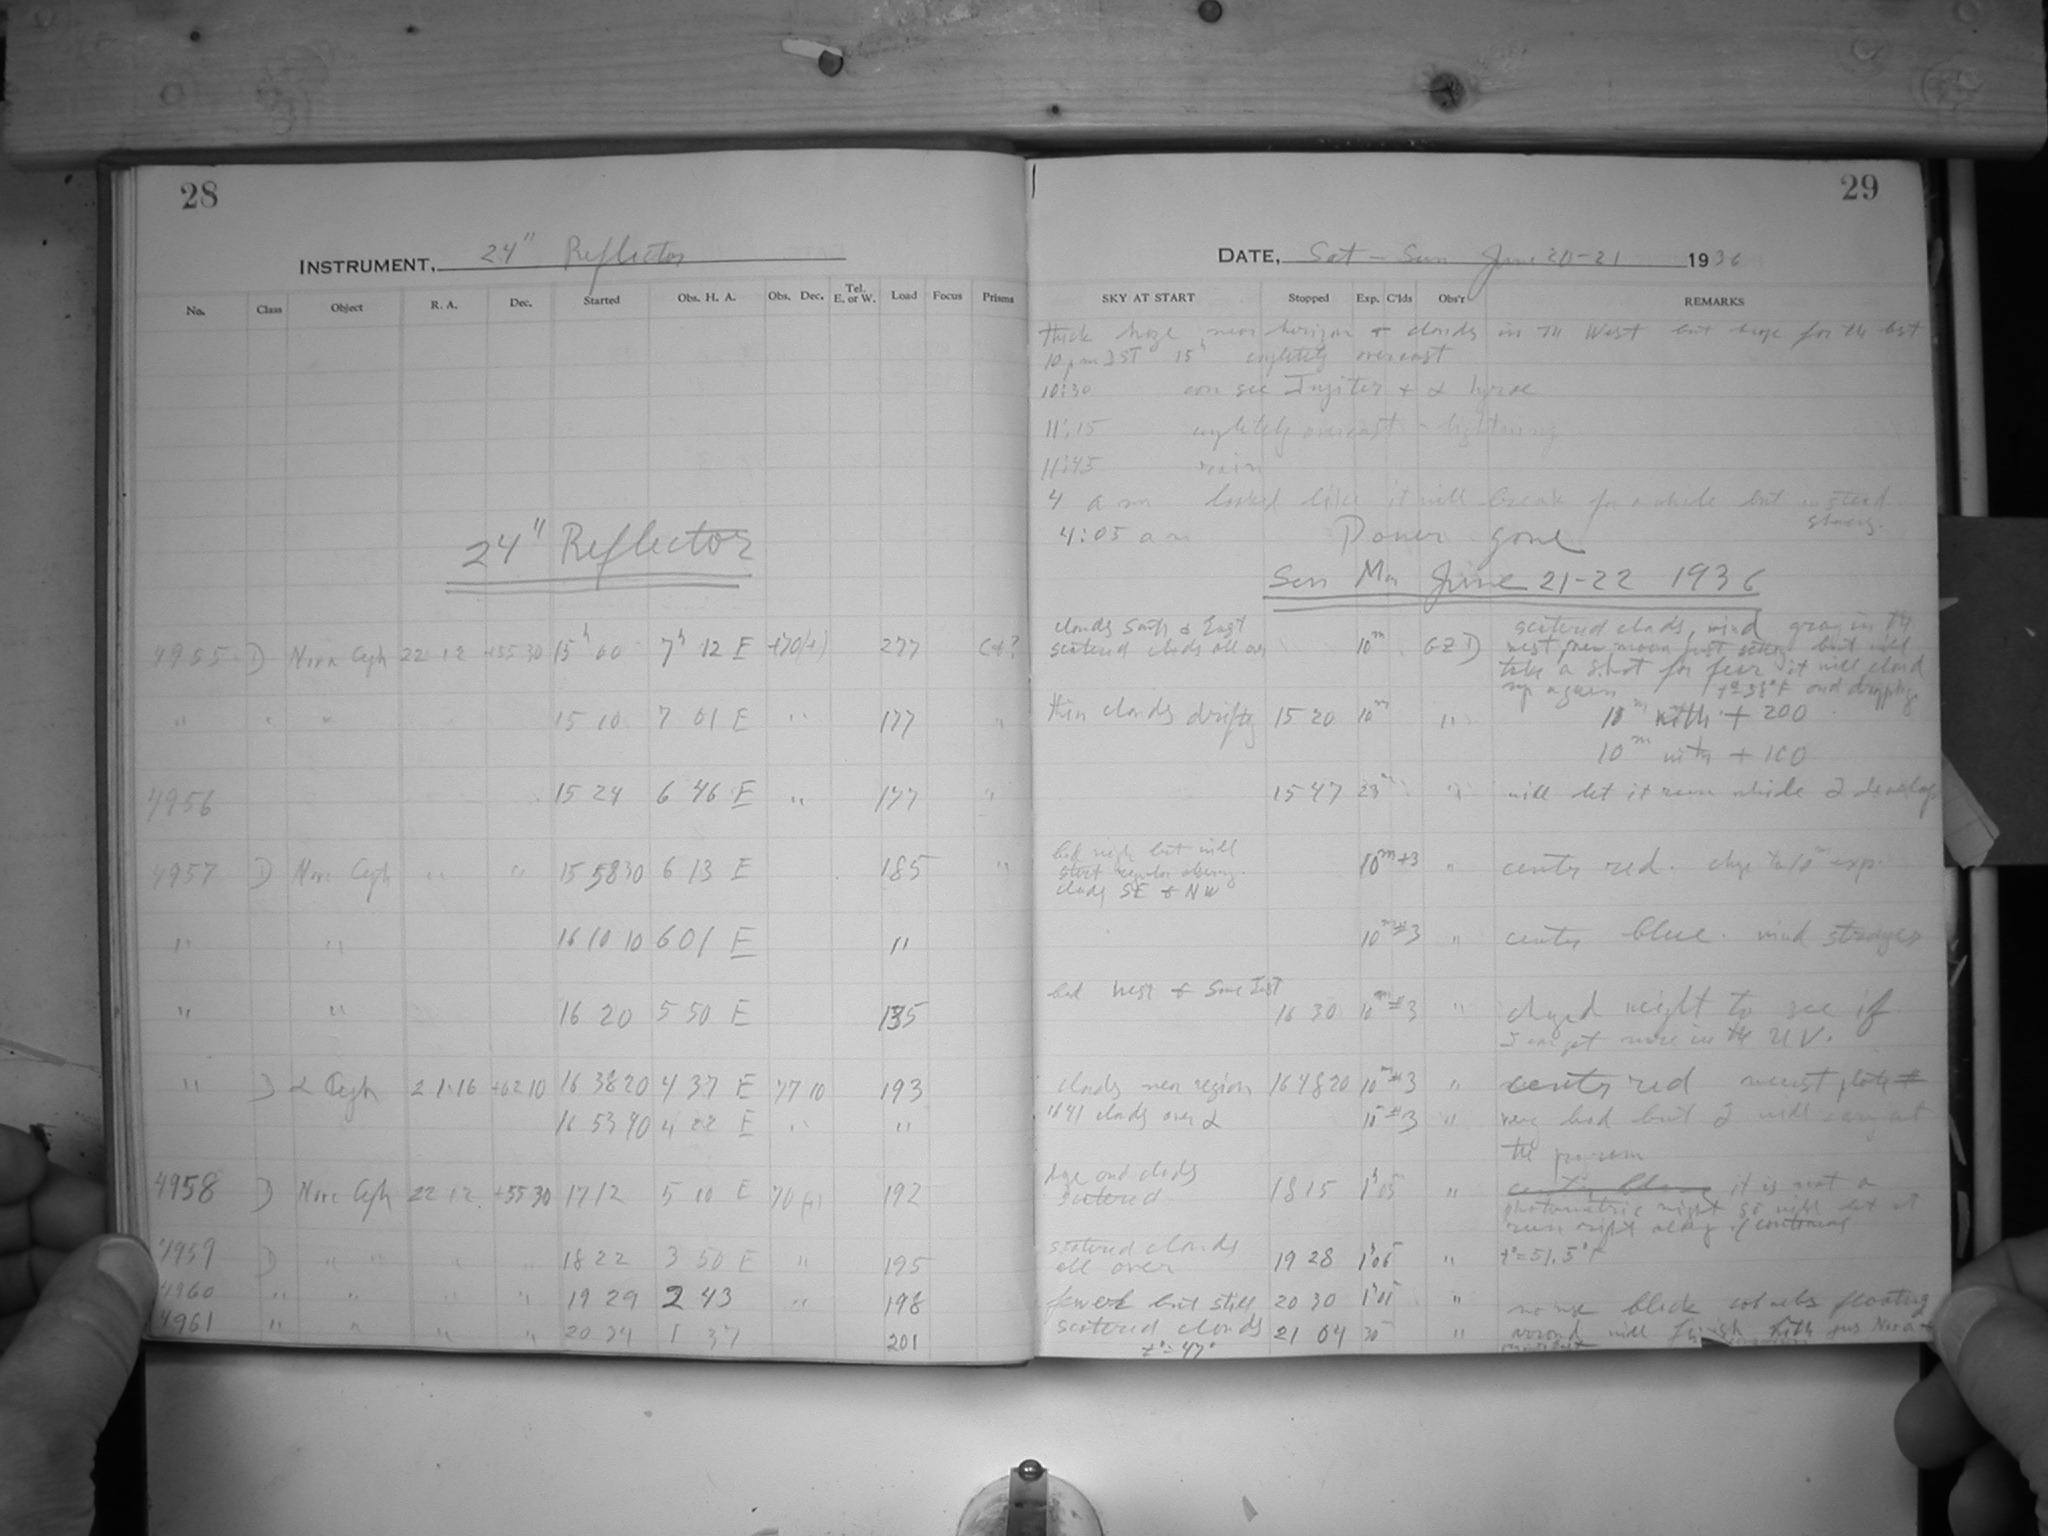 28
INSTRUMENT, 24" Reflector
No. Class Object R. A. Dec. Started Obs. H. A. Obs. Dec. Tel. E. or W. Load Focus Prisms
24" Reflector
4955 D Nova Ceph 22 12 +55 30 15h 00 7h 12 E +70(+) 277
" " " 15 10 7 01 E " 177 "
4956 15 24 6 46 E " 177 "
4957 D Nova Ceph " " 15 58 30 6 13 E 185 "
" " 16 10 10 6 01 E "
" " 16 20 5 50 E 135
" D α Ceph 21 16 +62 10 16 38 20 4 37 E 77 10 193
16 53 40 4 22 E " "
4958 D Nova Ceph 22 12 +55 30 17 12 5 10 E 70 (+) 192
4959 D " " " " 18 22 3 50 E " 195
4960 " " " " 19 29 2 43 " 198
4961 " " " " 20 34 1 37 201
29
DATE, Sat - Sun June 20-21 1936
SKY AT START Stopped Exp. C'lds Obs'r REMARKS
thick haze near horizon + clouds in the West but hope for the best
10 pm DST 15h completely overcast
10:30 can see Jupiter + α Lyrae
11:15 completely overcast - lightning
11:45 rain
4 am looked like it will break for a while but instead
4:05 am Power gone
Sun Mon June 21-22 1936
clouds South & East
scattered clouds all over 10m GZD
scattered clouds, wind
west, new moon just setting but will
take a shot for fear it will cloud
up again
thin clouds drifting 15 20 10m " 10m with + 200
10m with + 100
15 47 23m " will let it run while I develop
bad night but will
start regular observing.
clouds SE & NW 10m+3 " center red. change to 10m exp.
10m 3 " center blue. wind stronger
bad West & Some East 16 30 10m 3 " changed weight to see if
I can get more in the UV.
clouds near region 16 48 20 10m 3 " center red
1641 clouds over α 10m 3 " very bad but I will carry out
the program
haze and clouds
scattered 18 15 1h 05 " it is not a
photometric night so might let it
run right along if continuous
scattered clouds
all over 19 28 1h 06 " t°=51.5°F
fewer but still 20 30 1h 01 " no use black floating
scattered clouds 21 04 30 " around will finish with
t°=47°